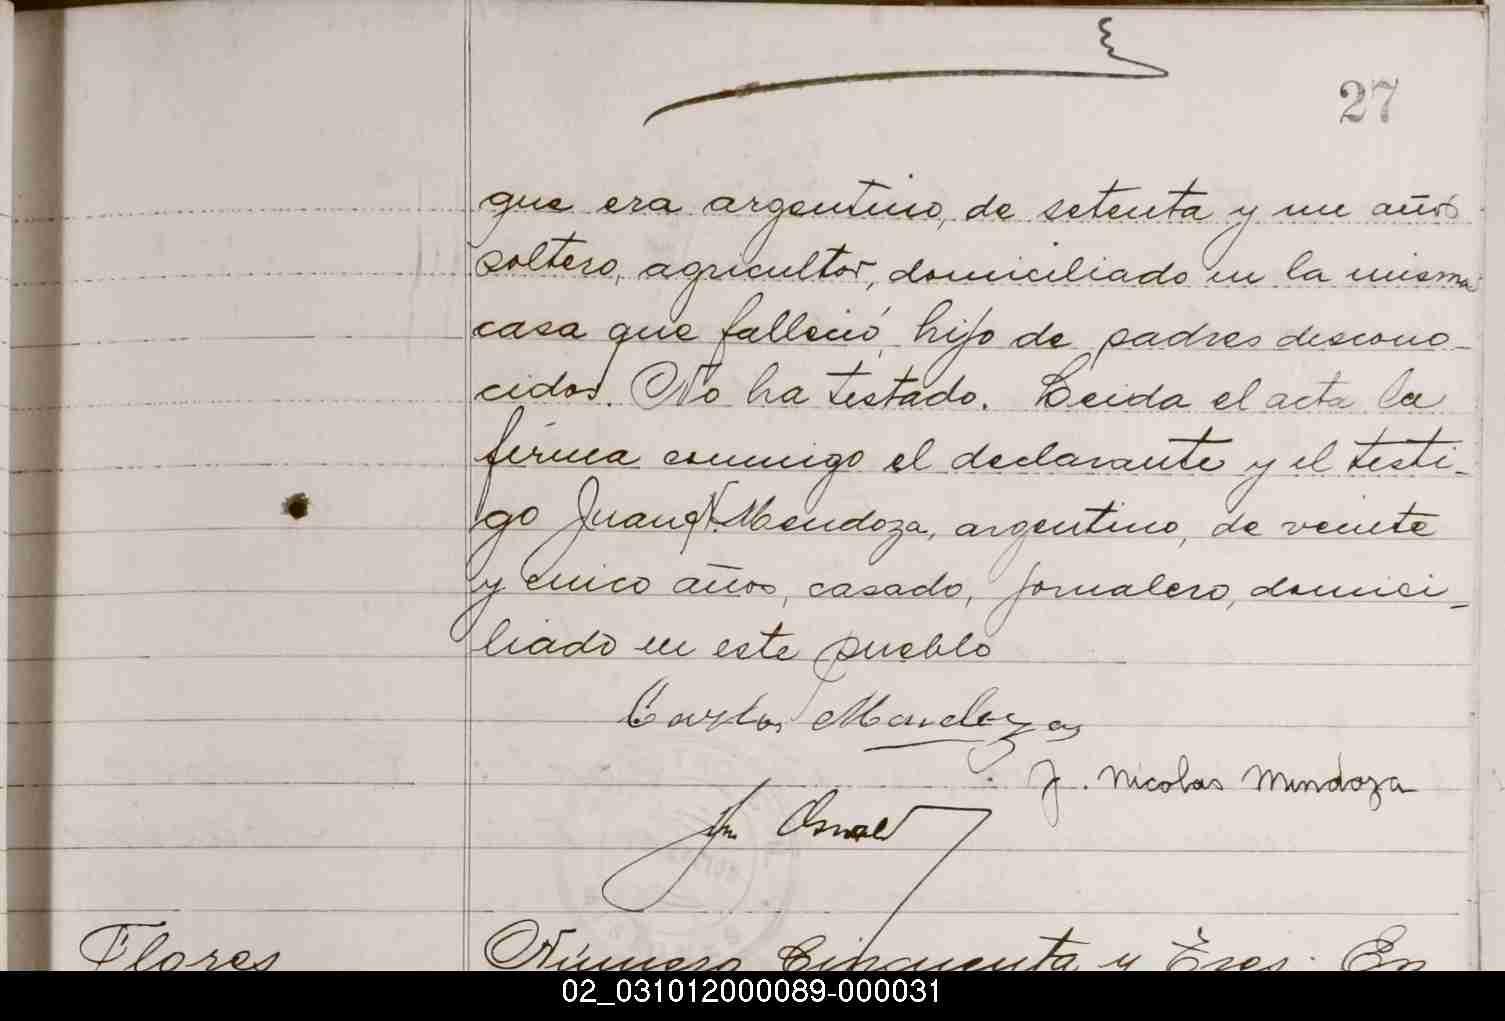 27
que era argentino, de setenta y un años
soltero, agricultor, domiciliado en la misma
casa que falleció, hijo de padres descono-
cidos. No ha testado. Leida el acta la
firma conmigo el declarante y el testi-
go Juan N. Mendoza, argentino, de veinte
y cinco años, casado, jornalero, domici-
liado en este pueblo
Carlos
J. Nicolas Mendoza
Flores
Número Cincuenta y Tres: En
02_031012000089-000031